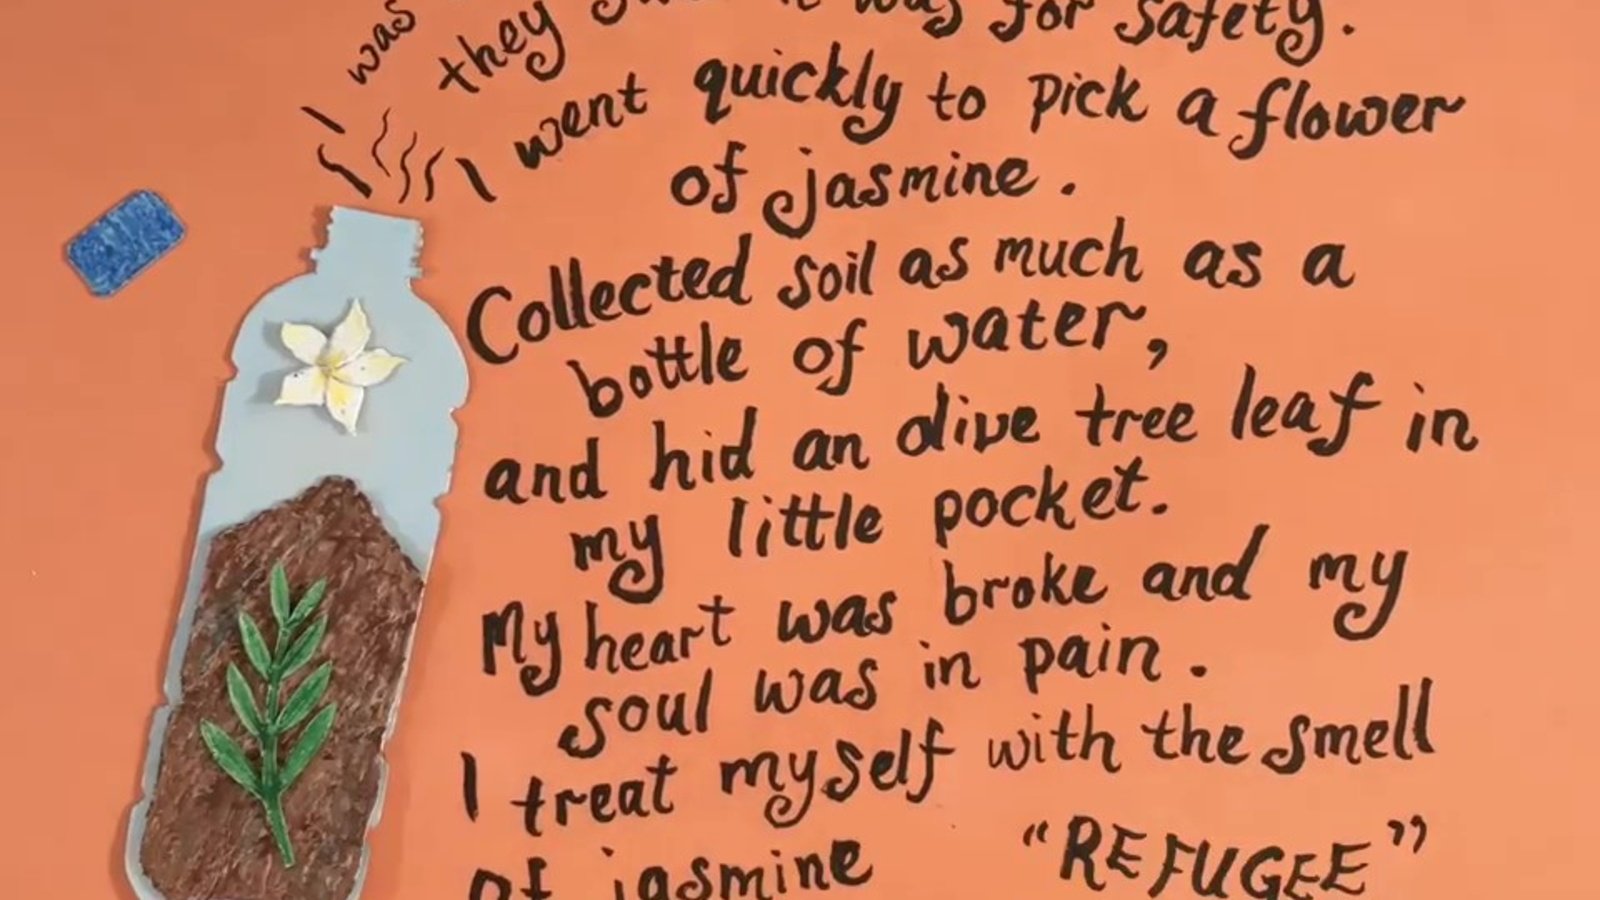 I was
they it was for safety.
I went quickly to pick a flower
of jasmine.
Collected soil as much as a
bottle of water,
and hid an olive tree leaf in
my little pocket.
My heart was broke and my
soul was in pain.
I treat myself with the smell
of jasmine "REFUGEE"